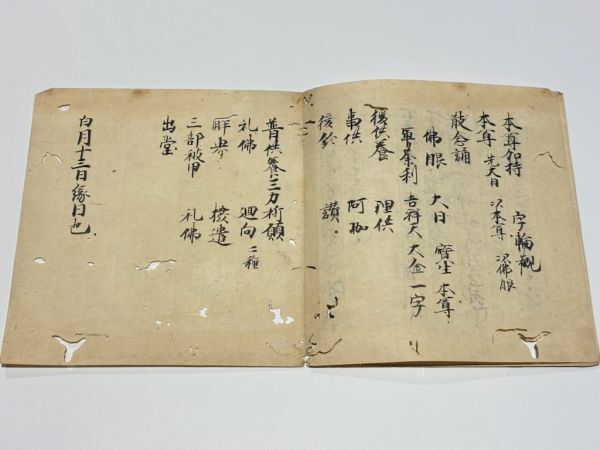 本尊加持　字輪観
本尊　先大日　次本尊　次佛眼
散念誦
佛眼　大日　寳生　本尊
軍荼利　吉祥天　大金　一字
後供養　理供
事供　閼伽
後鈴　讃
普供養　三力　祈願
礼佛　廻向　二種
解界　撥遣
三部被甲　礼佛
出堂
白月十三日縁日也